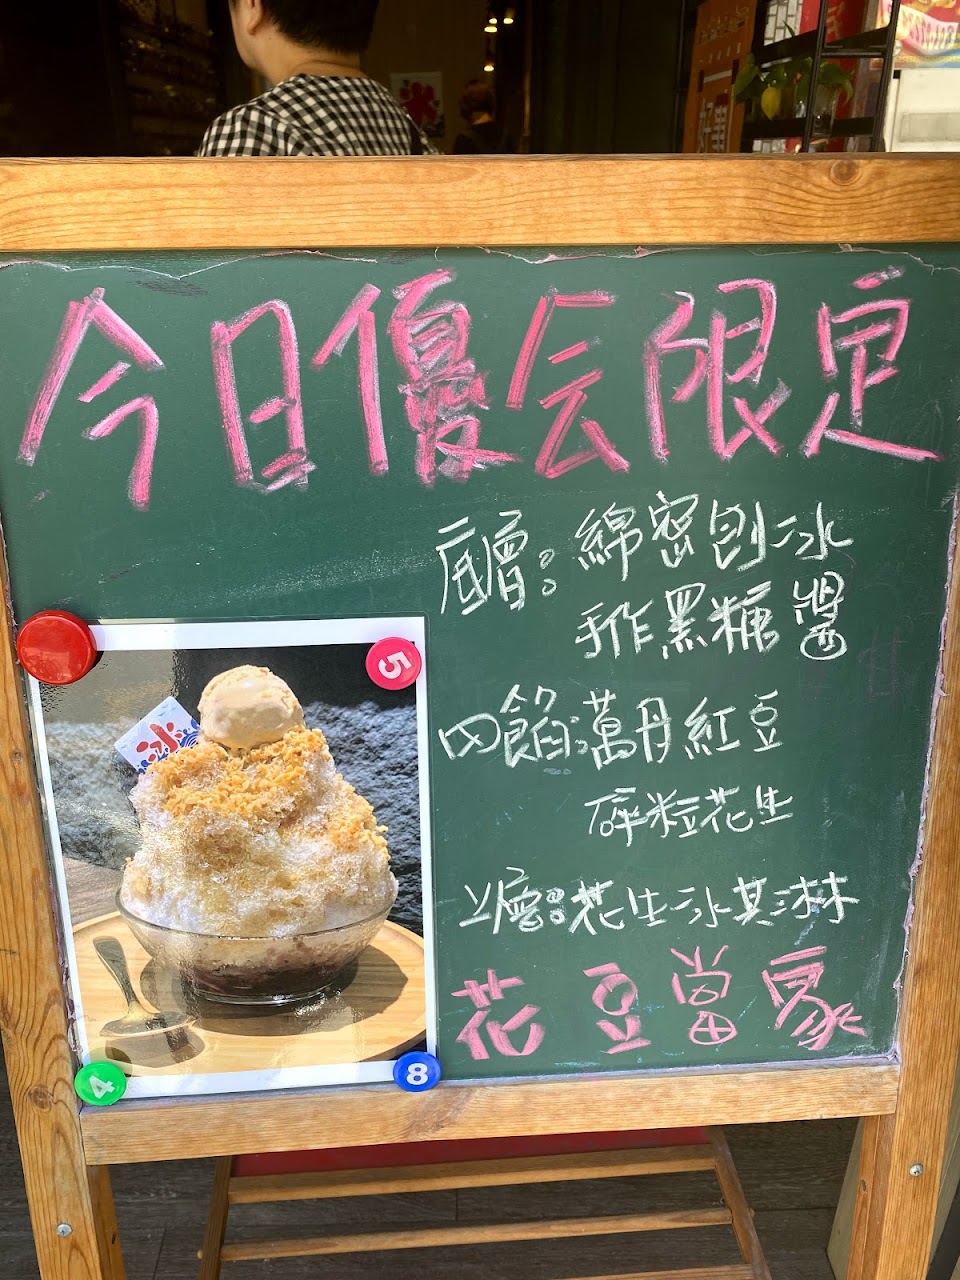 今日優会限定
底層：綿密刨冰
手作黑糖醬
內餡：萬丹紅豆
碎粒花生
上層：花生冰淇淋
花豆當家
冰
5
4
8